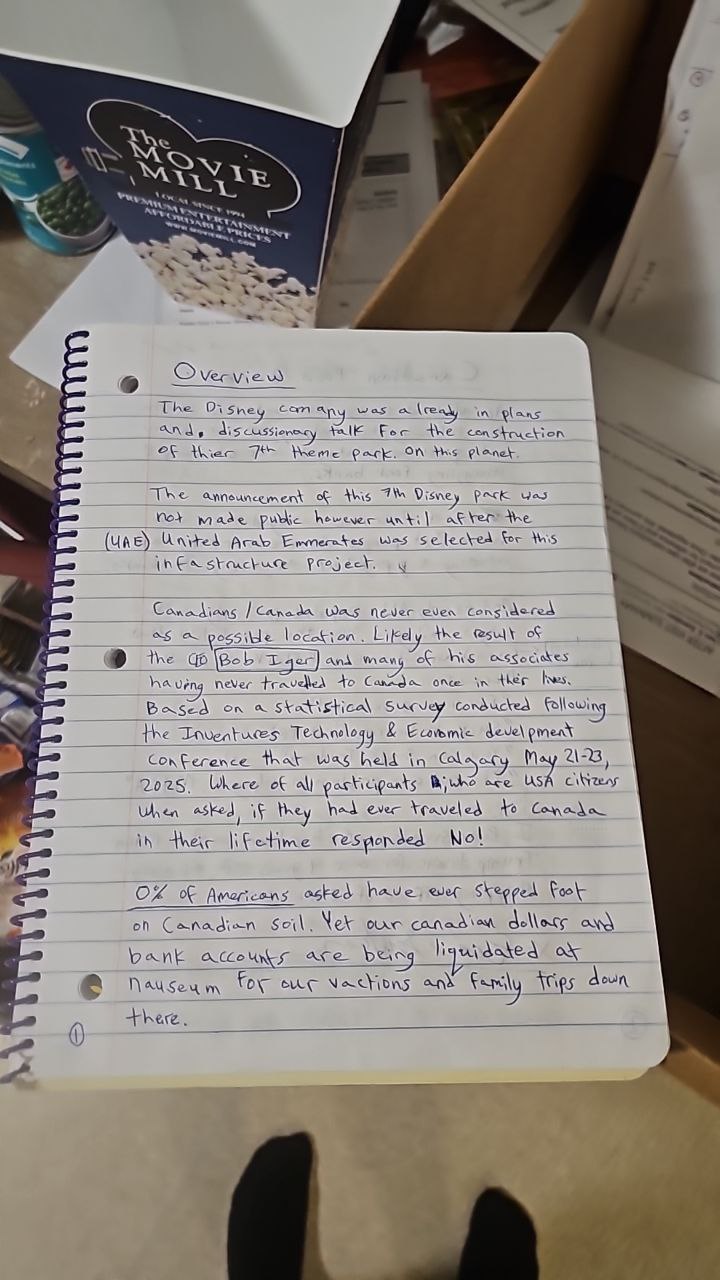 The
MOVIE
MILL
LOCAL SINCE 1994
PREMIUM ENTERTAINMENT
AFFORDABLE PRICES
WWW.MOVIEMILL.COM
Overview
The Disney comany was already in plans
and. discussionary talk for the construction
of thier 7th theme park. On this planet.
The announcement of this 7th Disney park was
not made public however until after the
(UAE) United Arab Emmerates was selected for this
infastructure project.
Canadians/Canada was never even considered
as a possible location. Likely the result of
the CEO Bob Iger and many of his associates
having never travelled to Canada once in their lives.
Based on a statistical survey conducted following
the Inventures Technology & Economic develpment
conference that was held in Calgary May 21-23,
2025. Where of all participants ;who are USA citizens
when asked, if they had ever traveled to Canada
in their lifetime responded No!
0% of Americans asked have ever stepped foot
on Canadian soil. Yet our canadian dollars and
bank accounts are being liquidated at
nauseum for our vactions and family trips down
there.
1